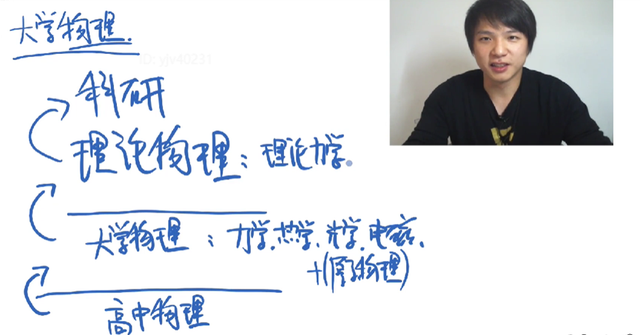 大学物理.
ID: yjv40231
科研
理论物理：理论力学
大学物理：力学、热学、光学、电磁、
+(原子物理)
高中物理